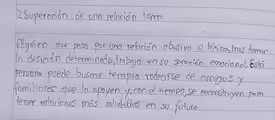 2 Superación de una relación toxica
Alguien que pasa por una relación abusiva o tóxica, tras tomar
la desición determinada, trabaja en su sanación emocional. Está
persona puede buscar terapia rodearse de amigos y
familiares que la apoyen y, con el tiempo, se reconstruyen para
tener relaciones más saludables en su futuro